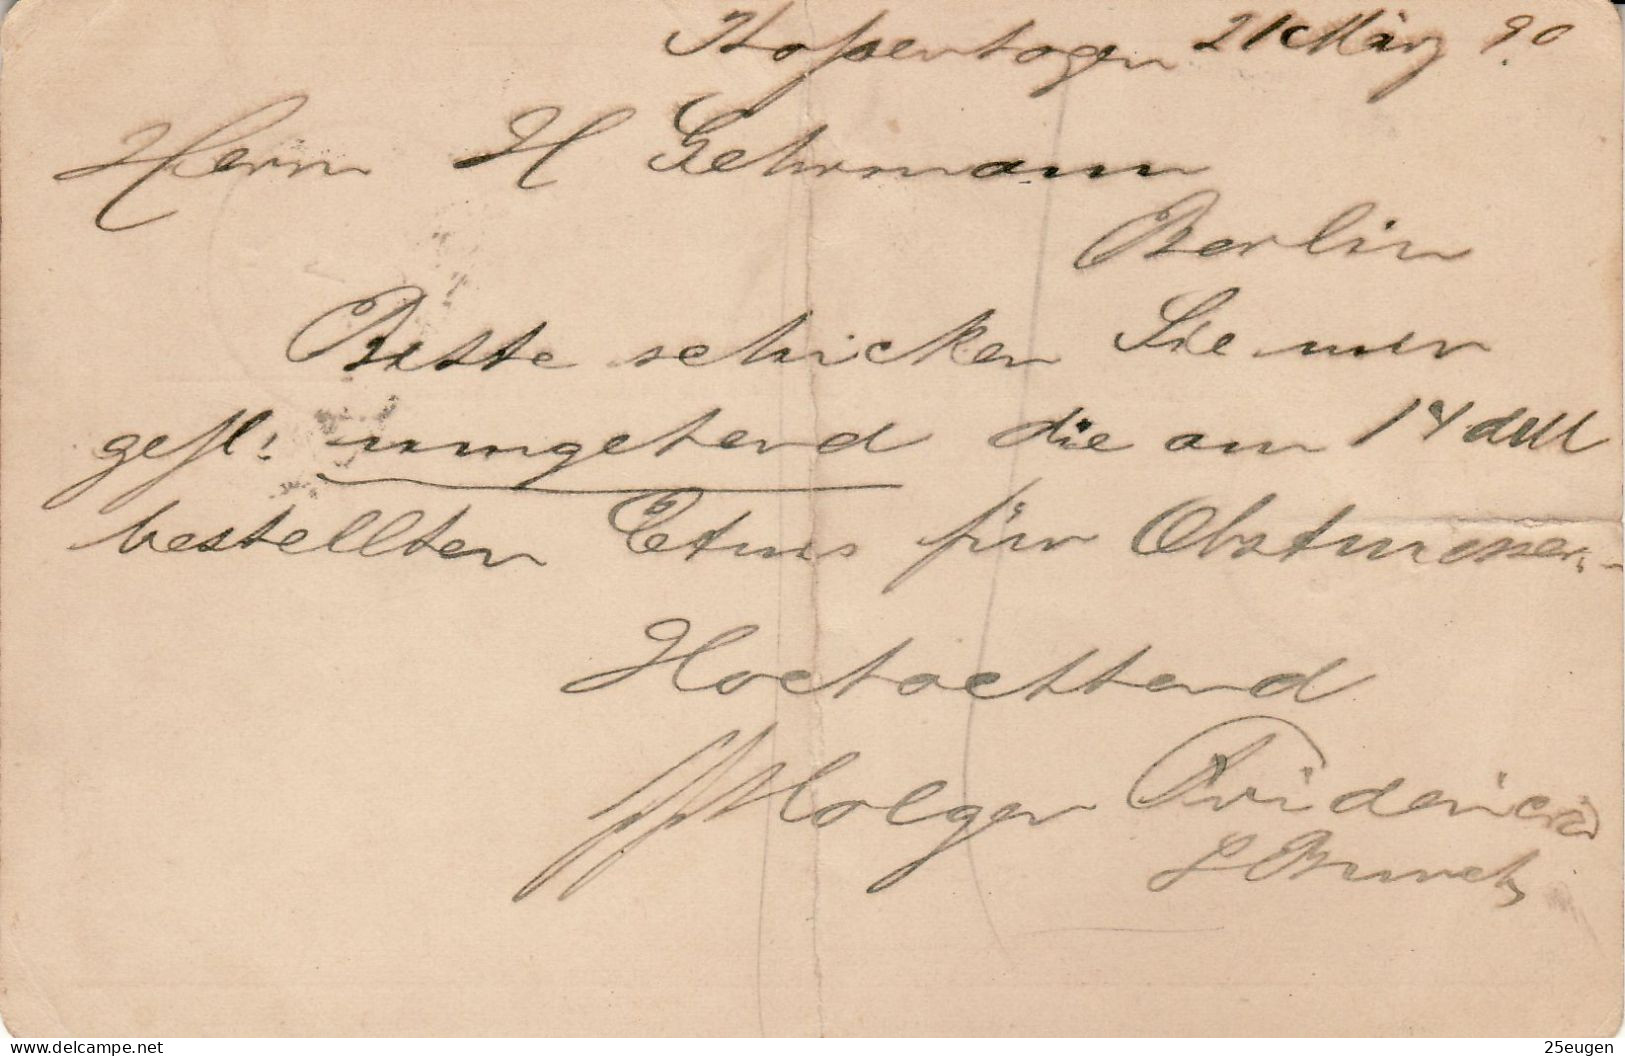 Kopenhagen 21 März 90
Herrn H Gehrmann
Berlin
Bitte schicken Sie mir
gefl: umgehend die am 14 dss
bestellten Etuis für Obstmesser.
Hochachtend
Holger Fridericia
25eugen